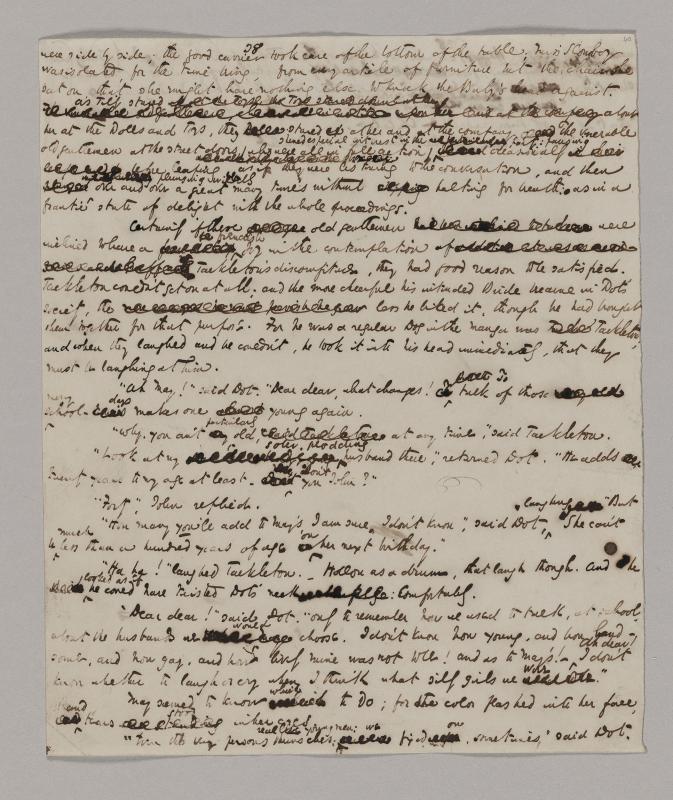 38
were side by side; the good carrier took care of the bottom of the table. Miss Slowboy
was isolated for the time being, from any article of furniture but the chair she
sat on, that she might have nothing else to knock the Baby's head against.
As Tilly stared about
her at the Dolls and Toys, they stared at her and at the company. The venerable
old gentlemen at the street doors, (who were all in full action)
showed especial interest in the party: pausing
occasionally before leaping, as if they were listening to the conversation, and then
plunging wildly
over and over, a great many times, without halting for breath, as in a
frantic state of delight with the whole proceedings.
Certainly if these old gentlemen were
inclined to have a fiendish joy in the contemplation of
Tackleton's discomfiture, they had good reason to be satisfied.
Tackleton couldn't get on at all; and the more cheerful his intended Bride became in Dot's
society, the less he liked it, though he had brought
them together for that purpose. For he was a regular Dog in the manger was Tackleton;
and when they laughed and he couldn't, he took it into his head immediately, that they
must be laughing at him.
"Ah May!" said Dot. "Dear dear, what changes! To talk of those
merry school-days makes one young again.
"Why, you an't particularly old, at any time;" said Tackleton.
"Look at my sober, plodding husband there," returned Dot. "He adds
twenty years to my age at least. Don't you John?"
"Forty," John replied.
"How many you'll add to May's, I am sure I don't know," said Dot, laughing. "But
She can't
be much less than a hundred years of age on her next birthday."
"Ha ha!" laughed Tackleton. Hollow as a drum, that laugh though. And he
looked as if he could have twisted Dot's neck: Comfortably.
"Dear dear!" said Dot. "Only to remember how we used to talk, at school,
about the husbands we would choose. I don't know how young, and how hand-
some, and how gay, and how lively mine was not to be! and as to May's!—Ah dear! I don't
know whether to laugh or cry, when I think what silly girls we were."
May seemed to know which to do; for the color flashed into her face,
and tears stood in her eyes.
"Even the very persons themselves; real live young men; we fixed on, sometimes," said Dot.